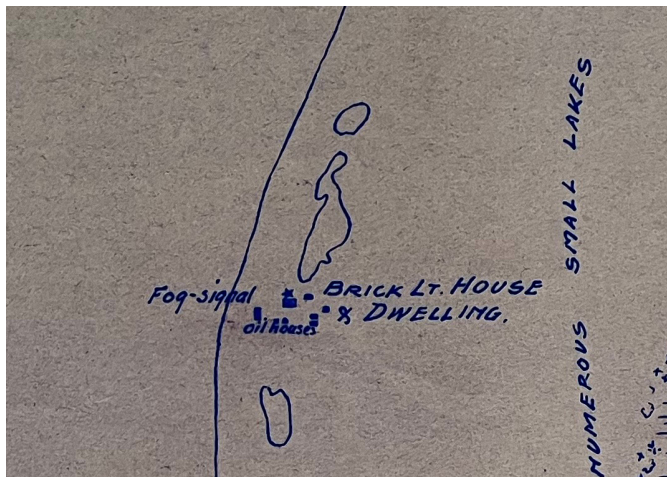 Fog-signal
BRICK LT. HOUSE
& DWELLING.
oil houses
NUMEROUS SMALL LAKES